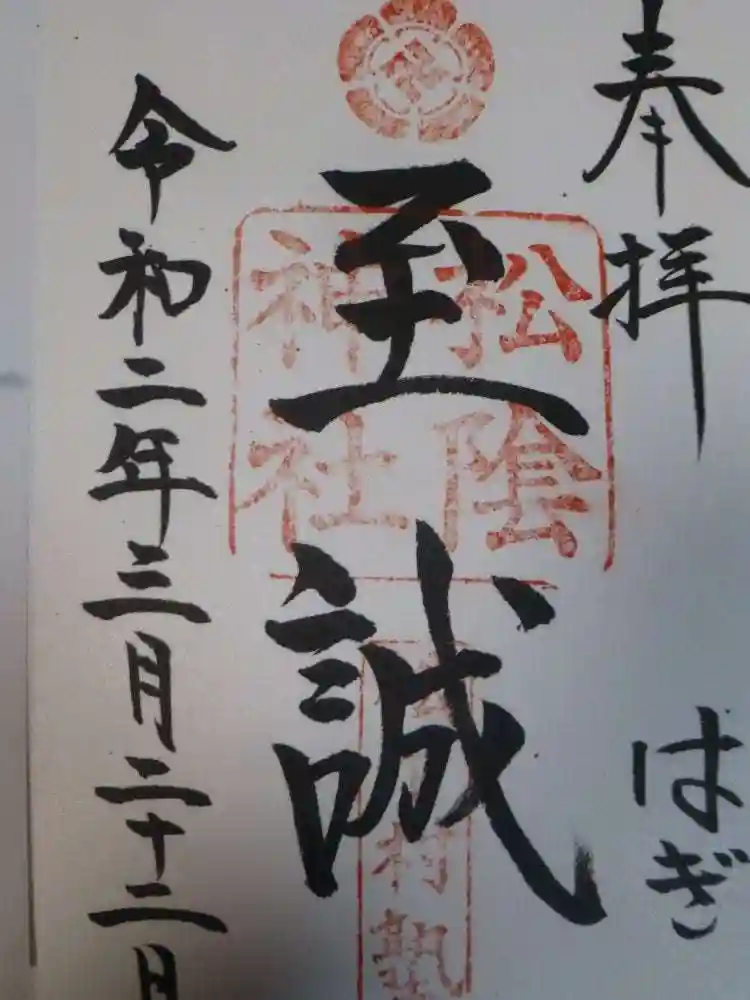 奉拝
はぎ
松陰
神社
至誠
村塾
令和二年三月二十二日